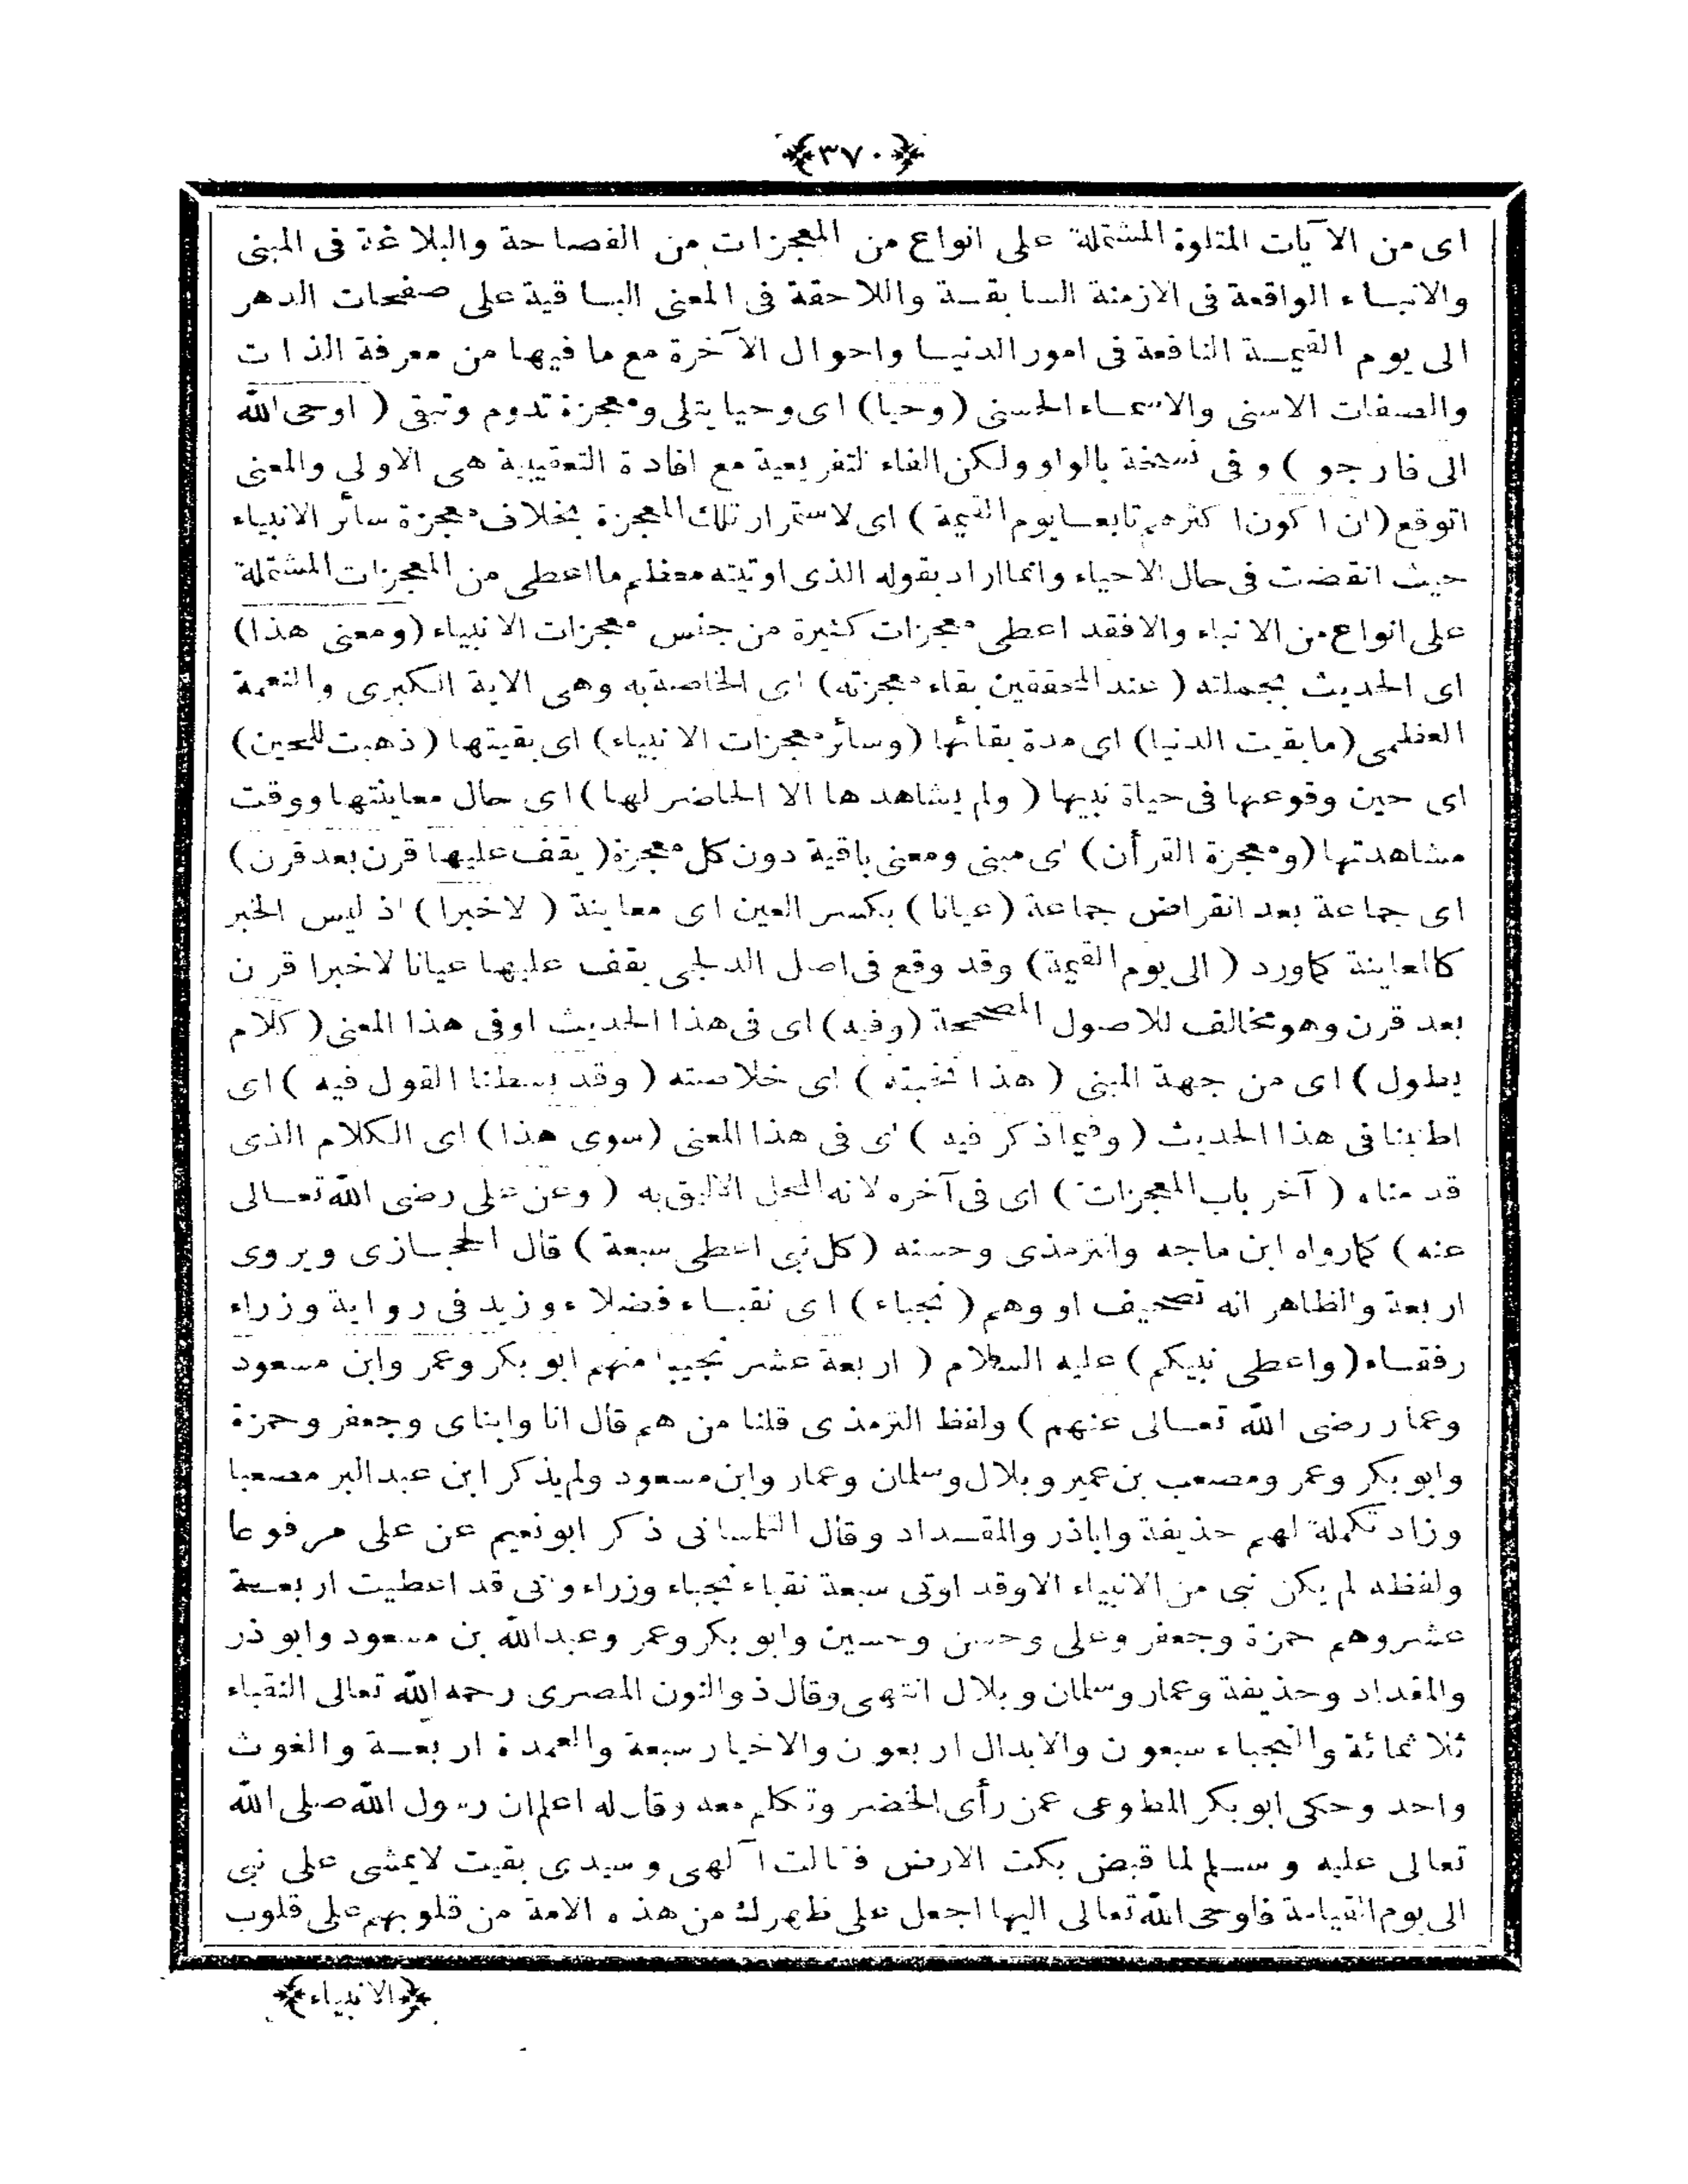 ﴿٣٧٠﴾
اى من الآيات المتلوة المشتملة على انواع من المعجزات من الفصاحة والبلاغة فى المبنى
والانبـاء الواقعة فى الازمنة السابقـة واللاحقة فى المعنى البـاقية على صفحات الدهر
الى يوم القيمـة النافعة فى امور الدنيـا واحوال الآخرة مع ما فيها من معرفة الذات
والصفات الاسنى والاسمـاء الحسنى (وحيا) اى وحيا يتلى ومعجزة تدوم وتبقى (اوحى الله
الى فارجو) وفى نسخة بالواو ولكن الفاء لتفريعية مع افادة التعقيبية هى الاولى والمعنى
اتوقع (ان اكون اكثرهم تابعـا يوم القيمة) اى لاستمرار تلك المعجزة بخلاف معجزة سائر الانبياء
حيث انقضت فى حال الاحياء وانما اراد بقوله الذى اوتيته معظم ما اعطى من المعجزات المشتملة
على انواع من الانباء والا فقد اعطى معجزات كثيرة من جنس معجزات الانبياء (ومعنى هذا)
اى الحديث بجملته (عند المحققين بقاء معجزته) اى الخاصة به وهى الاية الكبرى والنعمة
العظمى (ما بقيت الدنيا) اى مدة بقائها (وسائر معجزات الانبياء) اى بقيتها (ذهبت للحين)
اى حين وقوعها فى حياة نبيها (ولم يشاهدها الا الحاضر لها) اى حال معاينتها ووقت
مشاهدتها (ومعجزة القرأن) اى مبنى ومعنى باقية دون كل معجزة (يقف عليها قرن بعد قرن)
اى جماعة بعد انقراض جماعة (عيانا) بكسر العين اى معاينة (لاخبرا) اذ ليس الخبر
كالمعاينة كماورد (الى يوم القيمة) وقد وقع فى اصل الدلجى يقف عليها عيانا لاخبرا قرن
بعد قرن وهو مخالف للاصول المصححة (وفيه) اى فى هذا الحديث او فى هذا المعنى (كلام
يطول) اى من جهة المبنى (هذا نخبته) اى خلاصته (وقد بسطنا القول فيه) اى
اطنبنا فى هذا الحديث (وفيما ذكر فيه) اى فى هذا المعنى (سوى هذا) اى الكلام الذى
قدمناه (آخر باب المعجزات) اى فى آخره لانه المحل الاليق به (وعن على رضى الله تعـالى
عنه) كمارواه ابن ماجه والترمذى وحسنه (كل نبى اعطى سبعة) قال الحجـازى ويروى
اربعة والظاهر انه تصحيف او وهم (نجباء) اى نقبـاء فضلاء وزيد فى رواية وزراء
رفقـاء (واعطى نبيكم) عليه السلام (اربعة عشر نجيبا منهم ابو بكر وعمر وابن مسعود
وعمار رضى الله تعـالى عنهم) ولفظ الترمذى قلنا من هم قال انا وابناى وجعفر وحمزة
وابو بكر وعمر ومصعب بن عمير وبلال وسلمان وعمار وابن مسعود ولم يذكر ابن عبد البر مصعبا
وزاد تكملة لهم حذيفة واباذر والمقـداد وقال التلمسانى ذكر ابو نعيم عن على مرفوعا
ولفظه لم يكن نبى من الانبياء الا وقد اوتى سبعة نقباء نجباء وزراء وانى قد اعطيت اربعـة
عشر وهم حمزة وجعفر وعلى وحسن وحسين وابو بكر وعمر وعبد الله بن مسعود وابو ذر
والمقداد وحذيفة وعمار وسلمان وبلال انتهى وقال ذو النون المصرى رحمه الله تعالى النقباء
ثلاثمائة والنجباء سبعون والابدال اربعون والاخيار سبعة والعمدة اربعـة والغوث
واحد وحكى ابو بكر المطوعى عمن رأى الخضر وتكلم معه وقال له اعلم ان رسول الله صلى الله
تعالى عليه وسـلم لما قبض بكت الارض فقالت آلهى وسيدى بقيت لا يمشى على نبى
الى يوم القيامة فاوحى الله تعالى اليها اجعل على ظهرك من هذه الامة من قلوبهم على قلوب
﴿الانبياء﴾